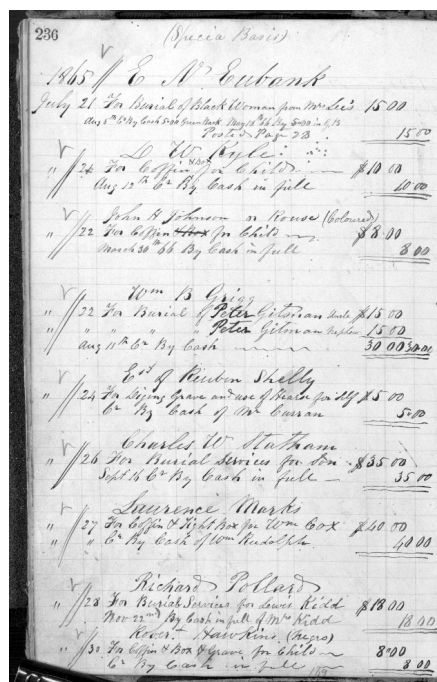 236
(Specia Basis)
1865 E N Eubank
July 21 For Burial of Black Woman from Mrs Lee's 15 00
Aug 5th Cr By Cash 5.00 Green Back May 18th 66 By 5.00 in
Posted Page 23 15 00
D. W. Kyle
" 26 For Coffin & Box for Child $10 00
Aug 12th Cr By Cash in full 10 00
John H Johnson or Rouse (Coloured)
" 22 For Coffin & Box for Child $8 00
March 30th 66 By Cash in full 8 00
Wm B Grigg
" 22 For Burial of Peter Gitman Uncle $15 00
" " " " " Peter Gitman Nephew 15 00
Aug 11th Cr By Cash 30 00 30.00
Est of Reuben Shelly
" 24 For Diging Grave and use of Hearse for self $5 00
Cr By Cash of Mr Curran 5.00
Charles W Statham
" 26 For Burial Services for Son $35 00
Sept 16 Cr By Cash in full 35 00
Laurence Marks
" 27 For Coffin & Tight Box for Wm Cox $40 00
" Cr By Cash of Wm Rudolph 40 00
Richard Pollard
" 28 For Burial Services for Lewis Kidd $18 00
Nov 22nd By Cash in full of Mrs Kidd 18 00
Rover. Hawkins (Negro)
" 30 For Coffin & Box & Grave for Child 8 00
Cr By Cash in full 8 00
159